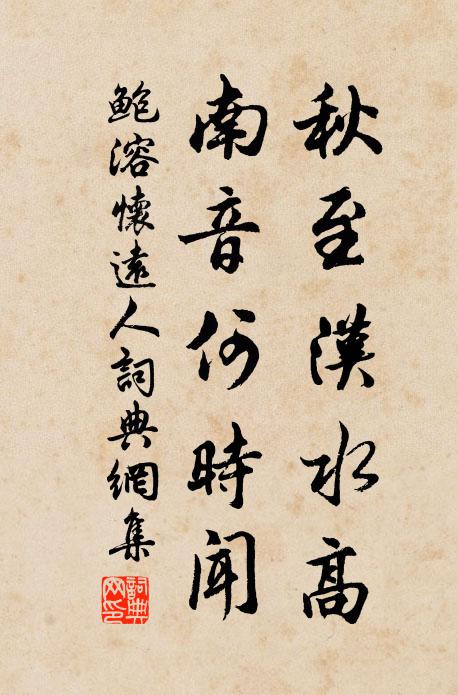 秋至漢水高
南音何時聞
鲍溶懷遠人詞典網集
詞典
网印